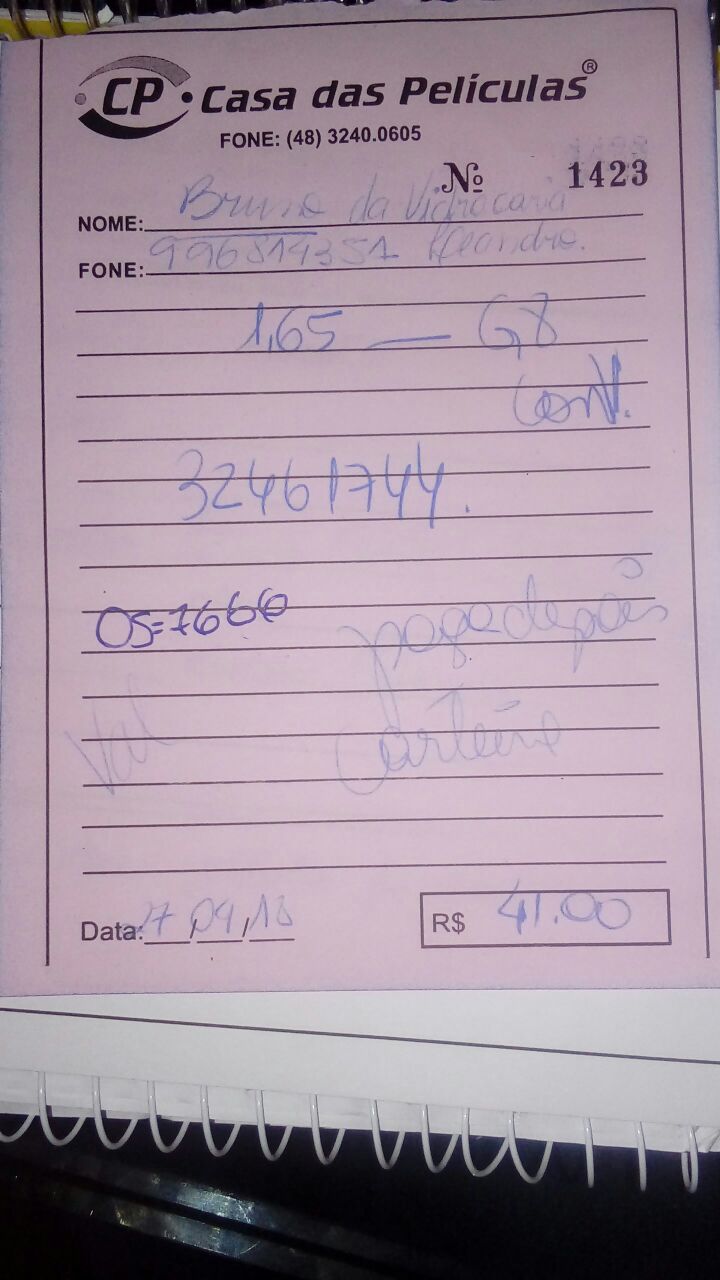 CP Casa das Películas®
FONE: (48) 3240.0605
Nº 1423
NOME: Bruno da Vidraçaria
FONE: 996814351 Leandro.
1,65 — G8
Conf.
32461744.
OS=7666
paga depois
Val Carteira
Data: 27/09/18 R$ 41.00